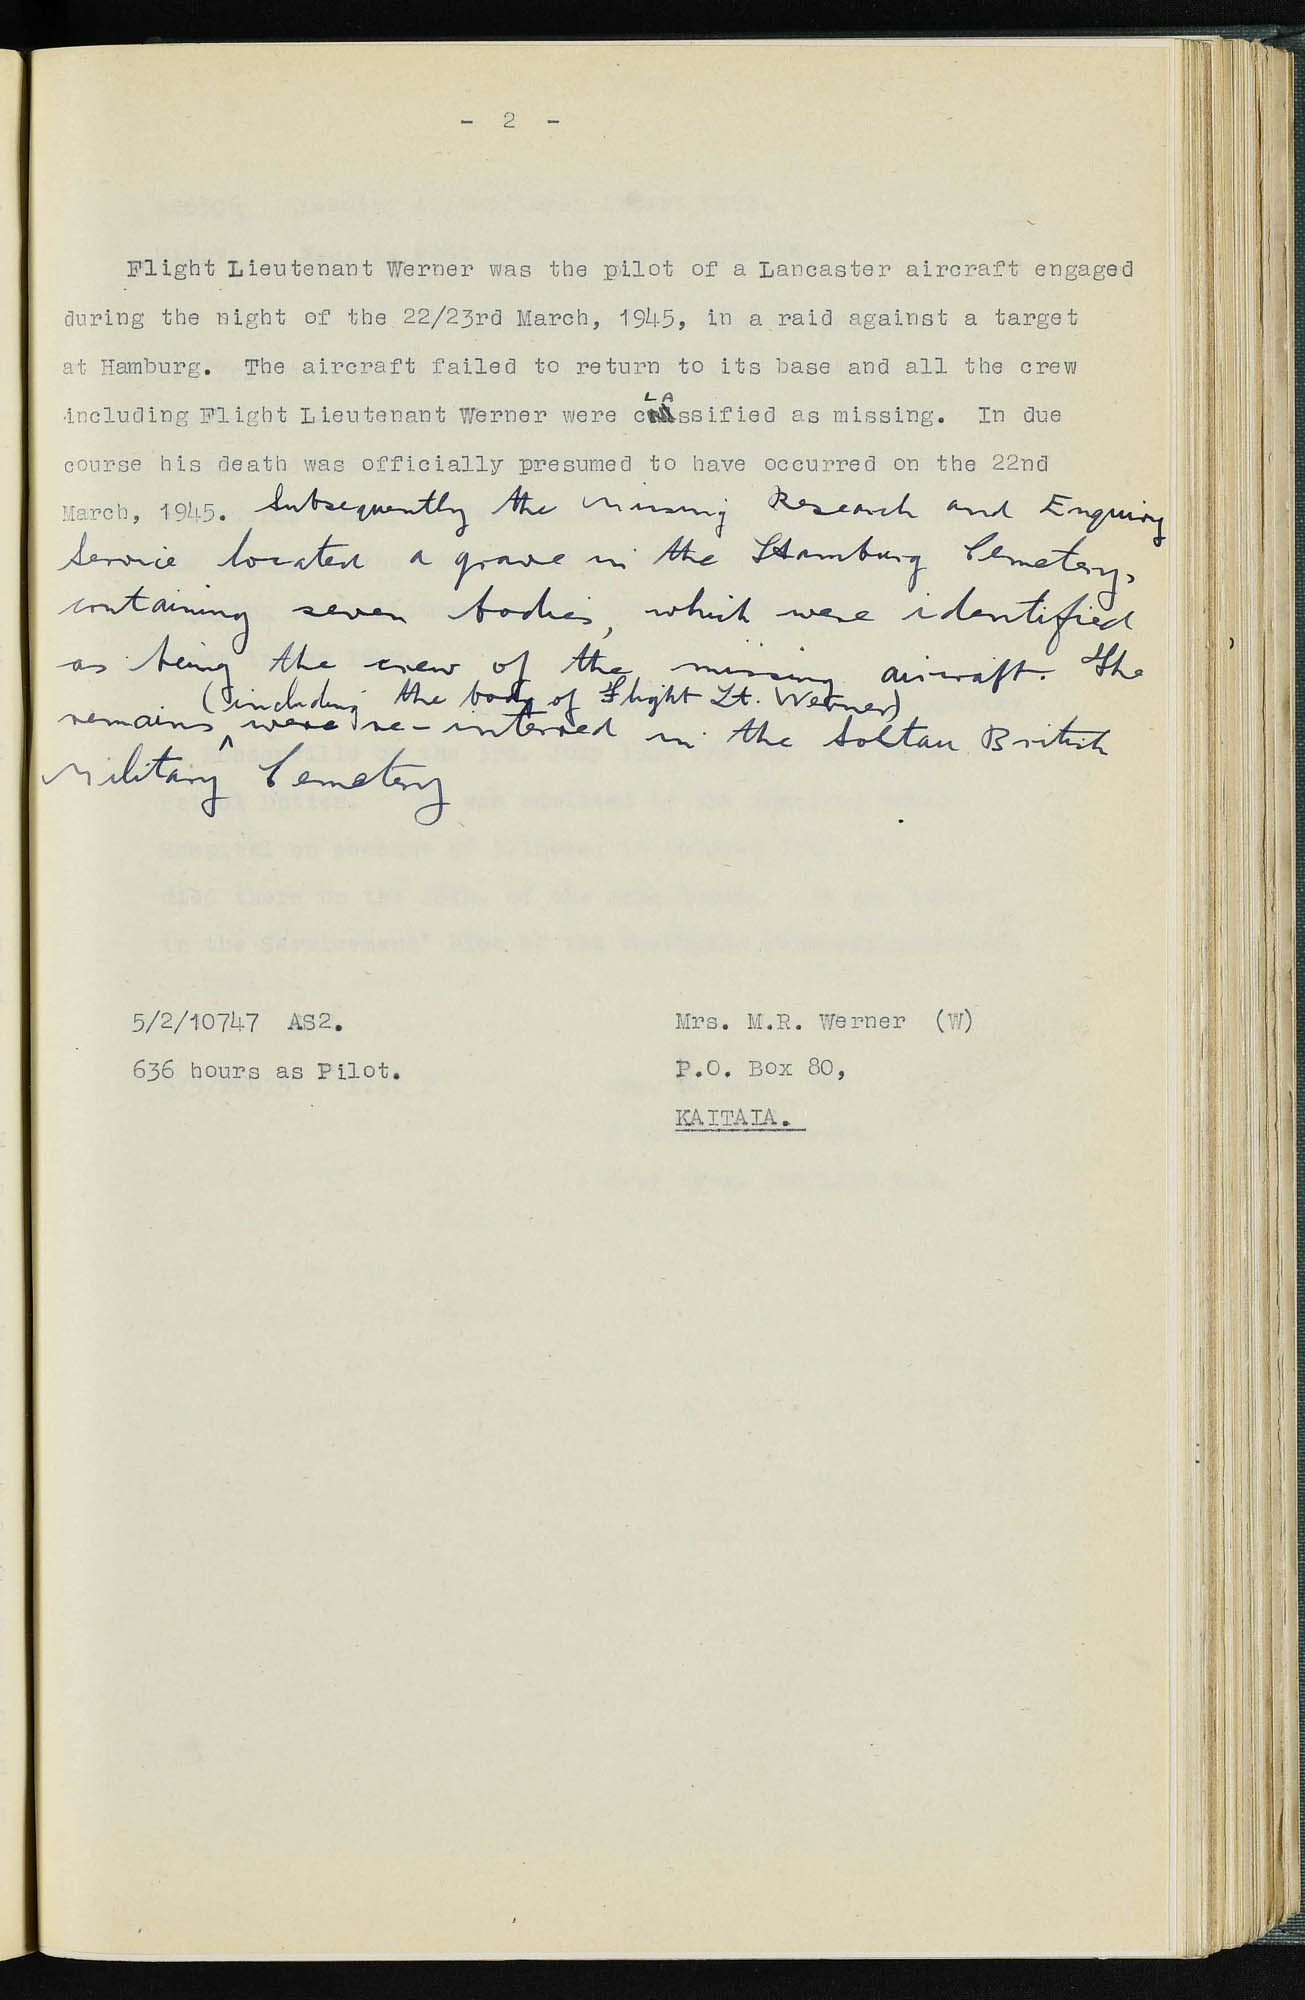 - 2 -
Flight Lieutenant Werner was the pilot of a Lancaster aircraft engaged
during the night of the 22/23rd March, 1945, in a raid against a target
at Hamburg. The aircraft failed to return to its base and all the crew
including Flight Lieutenant Werner were cLAssified as missing. In due
course his death was officially presumed to have occurred on the 22nd
March, 1945. Subsequently the Missing Research and Enquiry
Service located a grave in the Hamburg Cemetery,
containing seven bodies, which were identified
as being the crew of the missing aircraft. The
(including the body of Flight Lt. Werner)
remains ^ were re-interred in the Soltau British
Military Cemetery
5/2/10747 AS2.
636 hours as Pilot.
Mrs. M.R. Werner (W)
P.O. Box 80,
KAITAIA.